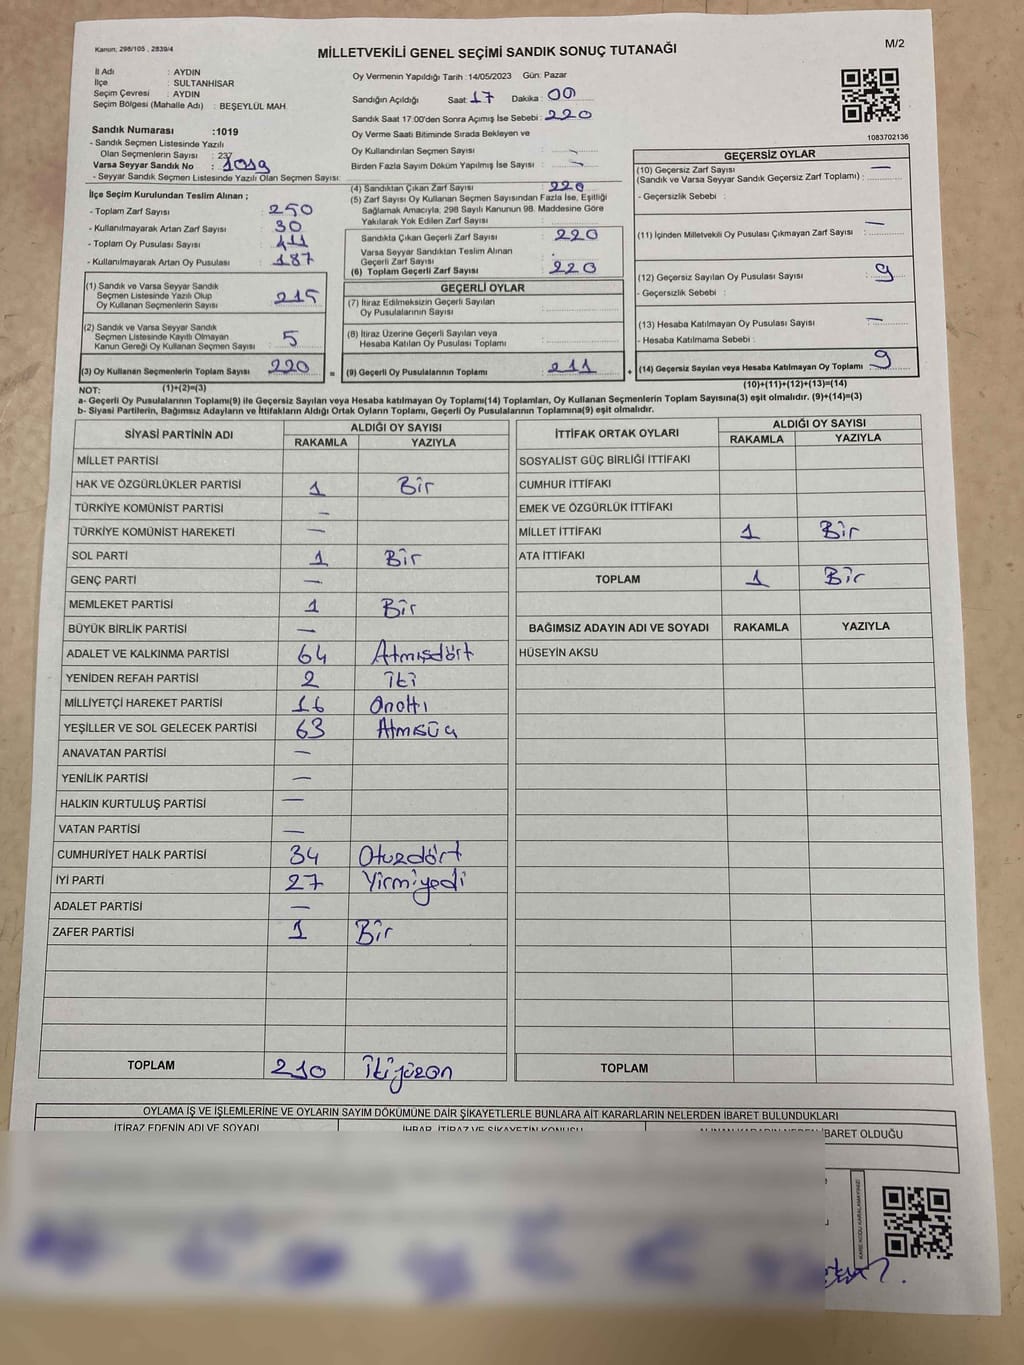 Kanun: 298/105 , 2839/4
MİLLETVEKİLİ GENEL SEÇİMİ SANDIK SONUÇ TUTANAĞI
M/2
İl Adı : AYDIN
İlçe : SULTANHİSAR
Seçim Çevresi : AYDIN
Seçim Bölgesi (Mahalle Adı) : BEŞEYLÜL MAH.
Sandık Numarası :1019
- Sandık Seçmen Listesinde Yazılı
Olan Seçmenlerin Sayısı : 237
Varsa Seyyar Sandık No : 1019
- Seyyar Sandık Seçmen Listesinde Yazılı Olan Seçmen Sayısı:
İlçe Seçim Kurulundan Teslim Alınan ;
- Toplam Zarf Sayısı : 250
- Kullanılmayarak Artan Zarf Sayısı : 30
- Toplam Oy Pusulası Sayısı : 411
- Kullanılmayarak Artan Oy Pusulası : 187
(1) Sandık ve Varsa Seyyar Sandık
Seçmen Listesinde Yazılı Olup
Oy Kullanan Seçmenlerin Sayısı : 215
(2) Sandık ve Varsa Seyyar Sandık
Seçmen Listesinde Kayıtlı Olmayan
Kanun Gereği Oy Kullanan Seçmen Sayısı : 5
(3) Oy Kullanan Seçmenlerin Toplam Sayısı : 220
Oy Vermenin Yapıldığı Tarih : 14/05/2023 Gün: Pazar
Sandığın Açıldığı Saat: 17 Dakika: 00
Sandık Saat 17:00'den Sonra Açımış İse Sebebi : 220
Oy Verme Saati Bitiminde Sırada Bekleyen ve
Oy Kullandırılan Seçmen Sayısı : -
Birden Fazla Sayım Döküm Yapılmış İse Sayısı : -
(4) Sandıktan Çıkan Zarf Sayısı : 220
(5) Zarf Sayısı Oy Kullanan Seçmen Sayısından Fazla İse, Eşitliği
Sağlamak Amacıyla, 298 Sayılı Kanunun 98. Maddesine Göre
Yakılarak Yok Edilen Zarf Sayısı :
Sandıkta Çıkan Geçerli Zarf Sayısı : 220
Varsa Seyyar Sandıktan Teslim Alınan
Geçerli Zarf Sayısı :
(6) Toplam Geçerli Zarf Sayısı : 220
GEÇERLİ OYLAR
(7) İtiraz Edilmeksizin Geçerli Sayılan
Oy Pusulalarının Sayısı :
(8) İtiraz Üzerine Geçerli Sayılan veya
Hesaba Katılan Oy Pusulaları Toplamı :
= (9) Geçerli Oy Pusulalarının Toplamı : 211 +
1083702136
GEÇERSİZ OYLAR
(10) Geçersiz Zarf Sayısı —
(Sandık ve Varsa Seyyar Sandık Geçersiz Zarf Toplamı) :
- Geçersizlik Sebebi :
(11) İçinden Milletvekili Oy Pusulası Çıkmayan Zarf Sayısı : —
(12) Geçersiz Sayılan Oy Pusulası Sayısı : 9
- Geçersizlik Sebebi :
(13) Hesaba Katılmayan Oy Pusulası Sayısı : —
- Hesaba Katılmama Sebebi :
(14) Geçersiz Sayılan veya Hesaba Katılmayan Oy Toplamı : 9
NOT: (1)+(2)=(3) (10)+(11)+(12)+(13)=(14)
a- Geçerli Oy Pusulalarının Toplamı(9) ile Geçersiz Sayılan veya Hesaba katılmayan Oy Toplamı(14) Toplamları, Oy Kullanan Seçmenlerin Toplam Sayısına(3) eşit olmalıdır. (9)+(14)=(3)
b- Siyasi Partilerin, Bağımsız Adayların ve İttifakların Aldığı Ortak Oyların Toplamı, Geçerli Oy Pusulalarının Toplamına(9) eşit olmalıdır.
SİYASİ PARTİNİN ADI ALDIĞI OY SAYISI
RAKAMLA YAZIYLA
MİLLET PARTİSİ
HAK VE ÖZGÜRLÜKLER PARTİSİ 1 Bir
TÜRKİYE KOMÜNİST PARTİSİ —
TÜRKİYE KOMÜNİST HAREKETİ —
SOL PARTİ 1 Bir
GENÇ PARTİ —
MEMLEKET PARTİSİ 1 Bir
BÜYÜK BİRLİK PARTİSİ —
ADALET VE KALKINMA PARTİSİ 64 Atmışdört
YENİDEN REFAH PARTİSİ 2 iki
MİLLİYETÇİ HAREKET PARTİSİ 16 Onaltı
YEŞİLLER VE SOL GELECEK PARTİSİ 63 Atmışüç
ANAVATAN PARTİSİ —
YENİLİK PARTİSİ —
HALKIN KURTULUŞ PARTİSİ —
VATAN PARTİSİ —
CUMHURİYET HALK PARTİSİ 34 Otuzdört
İYİ PARTİ 27 Yirmiyedi
ADALET PARTİSİ —
ZAFER PARTİSİ 1 Bir
TOPLAM 210 İkiyüzon
İTTİFAK ORTAK OYLARI ALDIĞI OY SAYISI
RAKAMLA YAZIYLA
SOSYALİST GÜÇ BİRLİĞİ İTTİFAKI
CUMHUR İTTİFAKI
EMEK VE ÖZGÜRLÜK İTTİFAKI
MİLLET İTTİFAKI 1 Bir
ATA İTTİFAKI
TOPLAM 1 Bir
BAĞIMSIZ ADAYIN ADI VE SOYADI RAKAMLA YAZIYLA
HÜSEYİN AKSU
TOPLAM
OYLAMA İŞ VE İŞLEMLERİNE VE OYLARIN SAYIM DÖKÜMÜNE DAİR ŞİKAYETLERLE BUNLARA AİT KARARLARIN NELERDEN İBARET BULUNDUKLARI
İTİRAZ EDENİN ADI VE SOYADI İHBAR, İTİRAZ VE ŞİKAYETİN KONUSU ALINAN KARARIN NEDEN İBARET OLDUĞU
KARE KODU KARALAMAYINIZ!